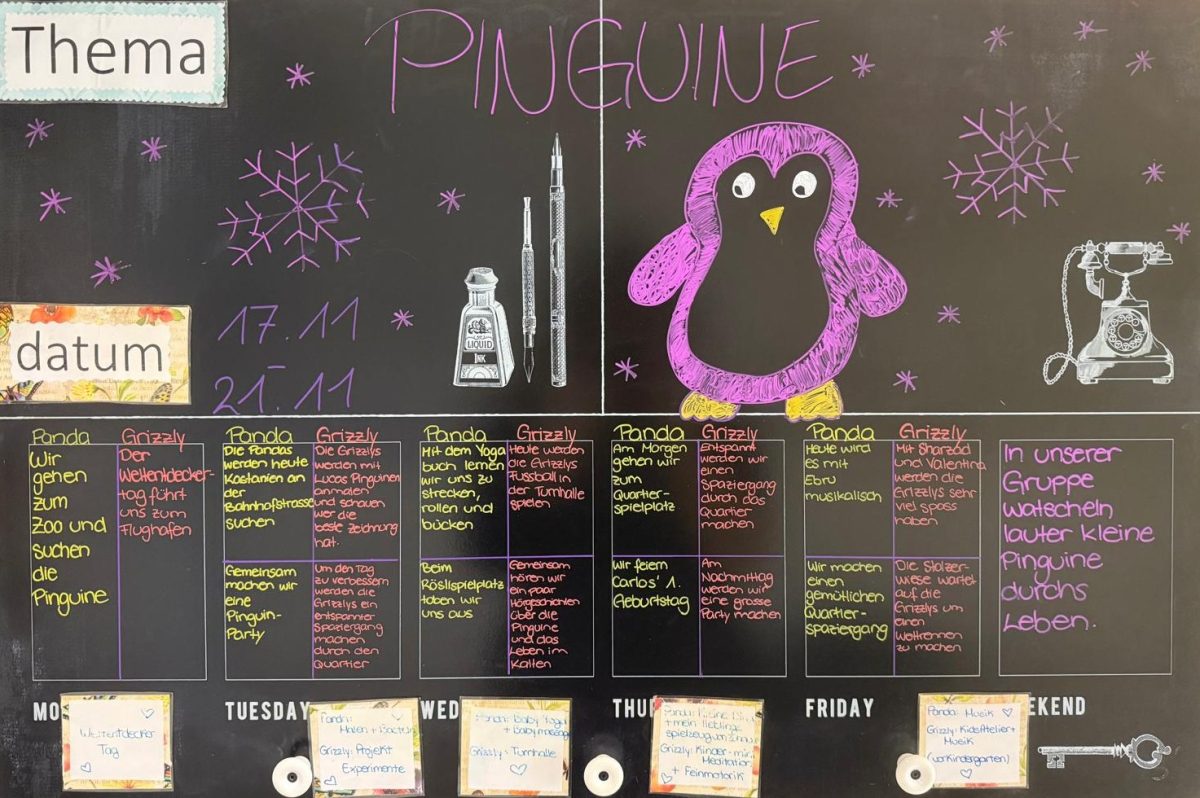 Thema
PINGUINE
LIQUID
INK
datum
17.11
-
21.11
Panda
Wir
gehen
zum
Zoo und
suchen
die
Pinguine
Grizzly
Der
Weltentdecker-
tag führt
uns zum
Flughafen
Panda
Die Pandas
werden heute
Kastanien an
der
Bahnhofstrasse
suchen
Gemeinsam
machen wir
eine
Pinguin-
Party
Grizzly
Die Grizzlys
werden mit
Lucas Pinguinen
anmalen
und schauen
wer die
beste Zeichnung
hat.
Um den Tag
zu verbessern
werden die
Grizzlys ein
entspannter
Spaziergang
machen
durch den
Quartier
Panda
Mit dem Yoga
buch lernen
wir uns zu
strecken,
rollen und
bücken
Beim
Röslispielplatz
toben wir
uns aus
Grizzly
Heute werden
die Grizzlys
Fussball in
der Turnhalle
spielen
Gemeinsam
hören wir
ein paar
Hörgeschichten
über die
Pinguine
und das
Leben im
Kalten
Panda
Am Morgen
gehen wir
zum
Quartier-
spielplatz
Wir feiern
Carlos' 1.
Geburtstag
Grizzly
Entspannt
werden wir
einen
Spaziergang
durch das
Quartier
machen
Am
Nachmittag
werden wir
eine grosse
Party machen
Panda
Heute wird
es mit
Ebru
musikalisch
Wir machen
einen
gemütlichen
Quartier-
spaziergang
Grizzly
Mit Sharzad
und Valentina
werden die
Grizzlys sehr
viel spass
haben
Die Stolzer-
wiese wartet
auf die
Grizzlys um
einen
Wettrennen
zu machen
In unserer
Gruppe
watscheln
lauter kleine
Pinguine
durchs
Leben.
MO
TUESDAY
WED
THU
FRIDAY
EKEND
Weltentdecker
Tag
Panda:
Malen + Basteln
Grizzly: Projekt
Experimente
Panda: Baby Yoga
+ Babymassage
Grizzly: Turnhalle
+ mein Lieblings
spielzeug von zuhause
Grizzly: Kinder-
Meditation
+ Feinmotorik
Panda: Musik
Grizzly: KidsAtelier+
Musik
(Vorkindergarten)